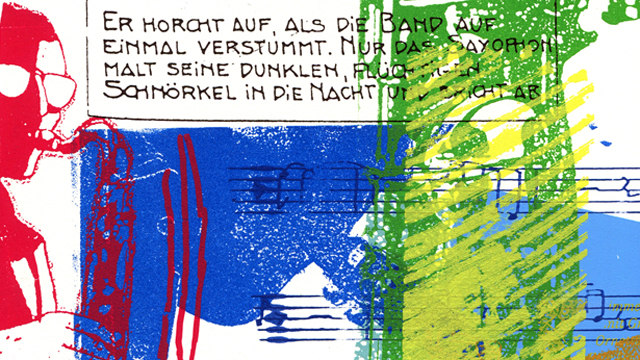 ER HORCHT AUF, ALS DIE BAND AUF
EINMAL VERSTUMMT. NUR DAS SAXOPHON
MALT SEINE DUNKLEN, FLÜCHTIGEN
SCHNÖRKEL IN DIE NACHT UND BRICHT AB